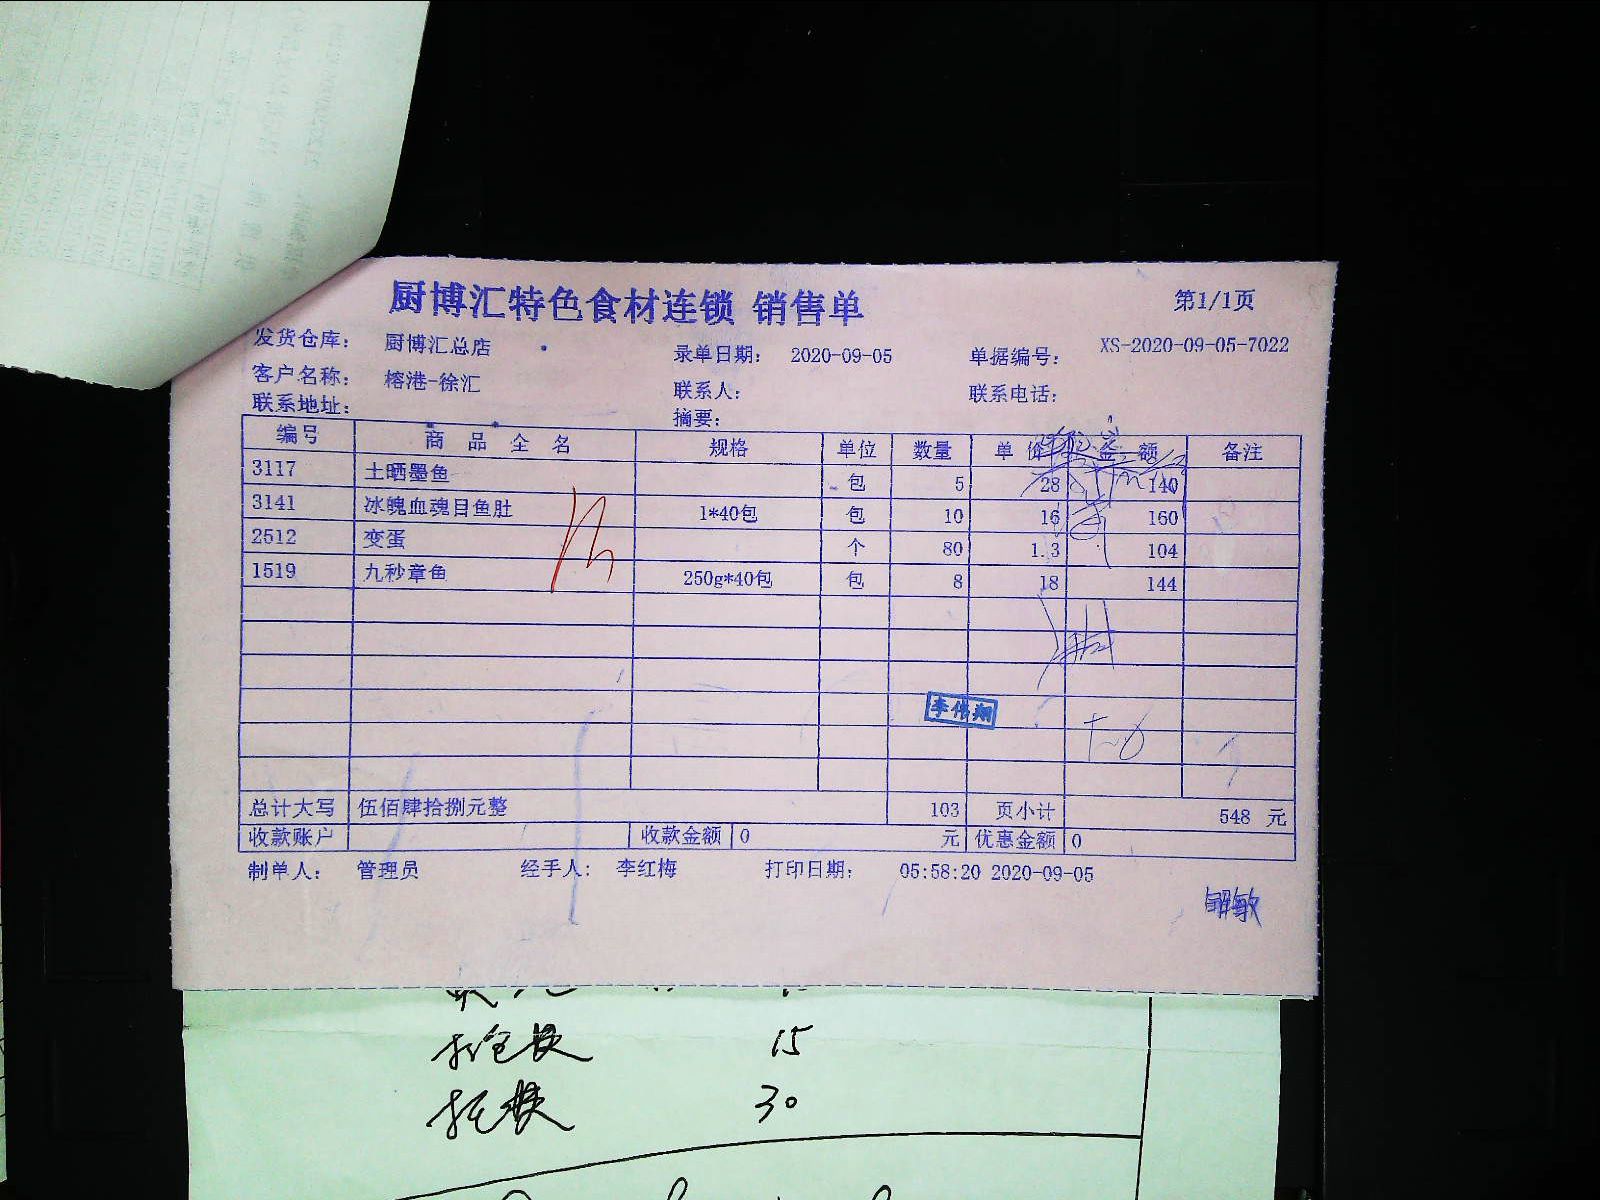 厨博汇特色食材连锁 销售单 第1/1页
发货仓库： 厨博汇总店 录单日期： 2020-09-05 单据编号： XS-2020-09-05-7022
客户名称： 榕港-徐汇 联系人： 联系电话：
联系地址： 摘要：
编号 商品全名 规格 单位 数量 单价 金额 备注
3117 土晒墨鱼 包 5 28 140
3141 冰魄血魂目鱼肚 1*40包 包 10 16 160
2512 变蛋 个 80 1.3 104
1519 九秒章鱼 250g*40包 包 8 18 144
李伟翔
总计大写 伍佰肆拾捌元整 103 页小计 548 元
收款账户 收款金额 0 元 优惠金额 0
制单人： 管理员 经手人： 李红梅 打印日期： 05:58:20 2020-09-05
解敏
15
30